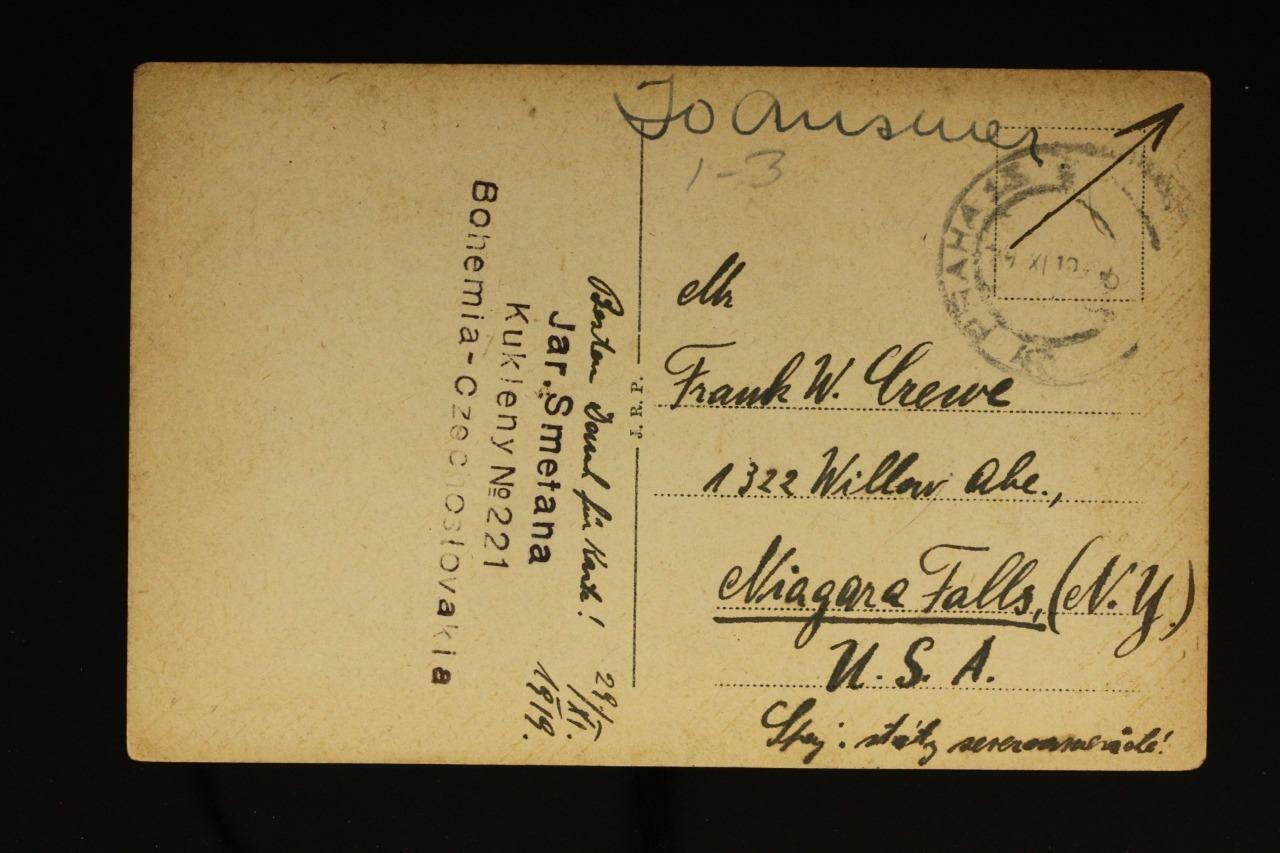 To Answer
1-3
PRAHA
Mr
Frank W. Crewe
1322 Willow Ave.,
Niagara Falls, (N. Y.)
U. S. A.
Spoj. státy severoamerické!
J. R. P.
Besten Dank für Karte!
29/
XI.
1919.
Jar. Smetana
Kukleny № 221
Bohemia-Czechoslovakia